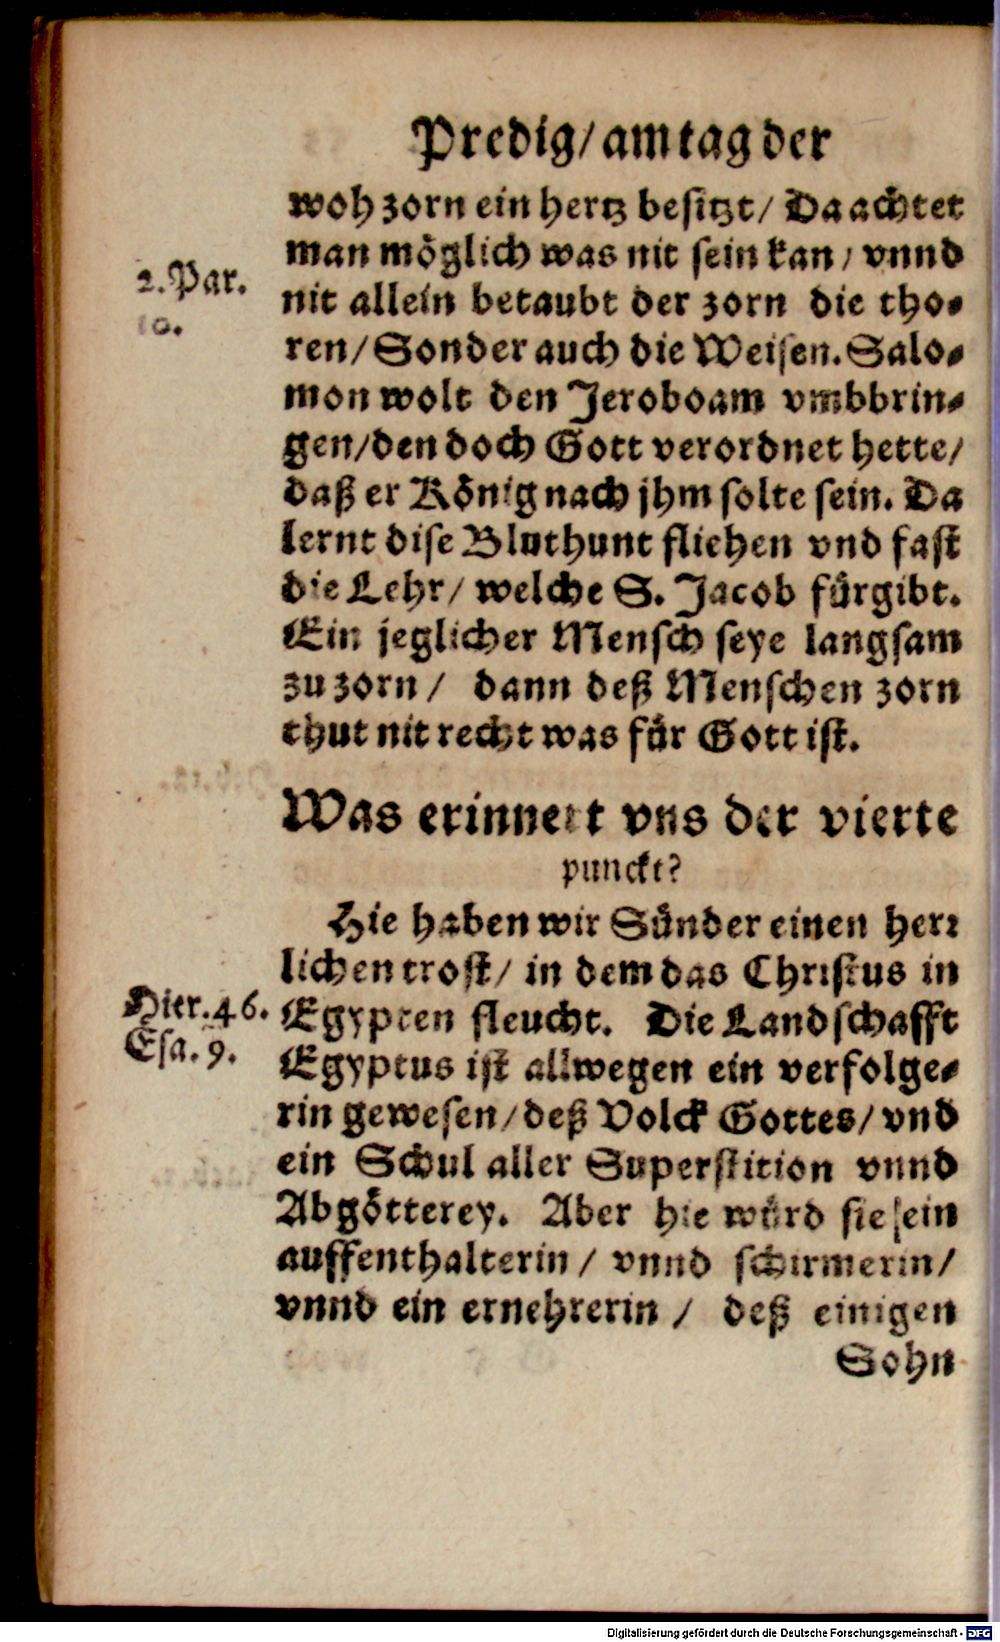 Predig/ am tag der
woh zorn ein hertz besitzt/ Da achtet
man möglich was nit sein kan/ vnnd
2. Par.
10.
nit allein betaubt der zorn die tho-
ren/ Sonder auch die Weisen. Salo-
mon wolt den Jeroboam vmbbrin-
gen/ den doch Gott verordnet hette/
daß er König nach jhm solte sein. Da
lernt dise Bluthunt fliehen vnd fast
die Lehr/ welche S. Jacob fürgibt.
Ein jeglicher Mensch seye langsam
zu zorn/ dann deß Menschen zorn
thut nit recht was für Gott ist.
Was erinnert vns der vierte
punckt?
Hie haben wir Sünder einen herr
lichen trost/ in dem das Christus in
Hier. 46.
Esa. 9.
Egypten fleucht. Die Landschafft
Egyptus ist allwegen ein verfolge-
rin gewesen/ deß Volck Gottes/ vnd
ein Schul aller Superstition vnnd
Abgötterey. Aber hie würd sie sein
auffenthalterin/ vnnd schirmerin/
vnnd ein ernehrerin/ deß einigen
Sohn
Digitalisierung gefördert durch die Deutsche Forschungsgemeinschaft - DFG